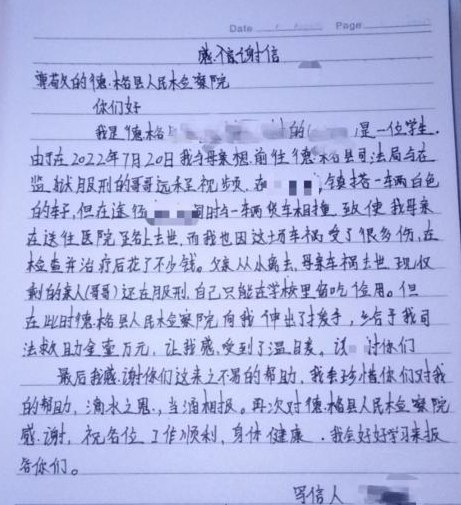 Date Page
感谢信
尊敬的德格县人民检察院
你们好
我是德格的是一位学生.
由于在2022年7月20日我与母亲想前往德格县司法局与在
监狱服刑的哥哥远程视频,在镇搭一车两白色
的车子,但在途径时与一辆货车相撞,致使我母亲
在送往医院路上去世,而我也因这场车祸受了很多伤,在
检查并治疗后花了不少钱。父亲从小离去,母亲车祸去世,现仅
剩的亲人(哥哥)还在服刑,自己只能在学校里留吃住用。但
在此时德格县人民检察院向我伸出了援手,给予我司
法救助金壹万元,让我感受到了温暖。谢你们
最后我感谢你们这来之不易的帮助,我会珍惜你们对我
的帮助,滴水之恩,当涌相报。再次对德格县人民检察院
感谢,祝各位工作顺利,身体健康.我会好好学习来报
答你们。
写信人